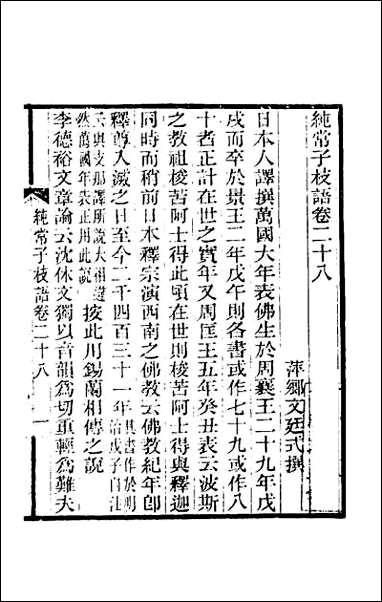 純常子枝語卷二十八
萍鄉文廷式撰
日本人譯撰萬國大年表佛生於周襄王二十九年戊
戌而卒於景王二年戊午則各書或作七十九或作八
十者正計在世之實年又周匡王五年癸丑表云波斯
之教祖梭苦阿士得此頃在世則梭苦阿士得與釋迦
同時而稍前日本釋宗演西南之佛教云佛教紀年卽
釋尊入滅之日至今二千四百三十一年其書作於明治戊子自注
云與支那譯所說大相違然萬國年表正用此說按此用錫蘭相傳之說
李德裕文章論云沈休文獨以音韻為切重輕為難夫
純常子枝語卷二十八 一